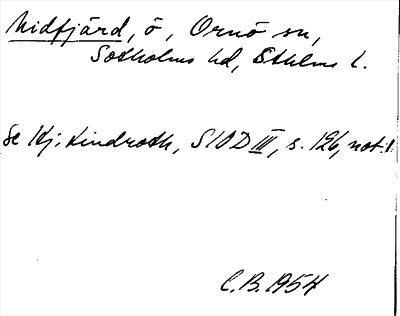 Midfjärd, ö, Ornö sn,
Sotholms hd, Sthlms l.
Se Hj. Lindroth, SIOD III, s. 126, not. 1.
C.B. 1954